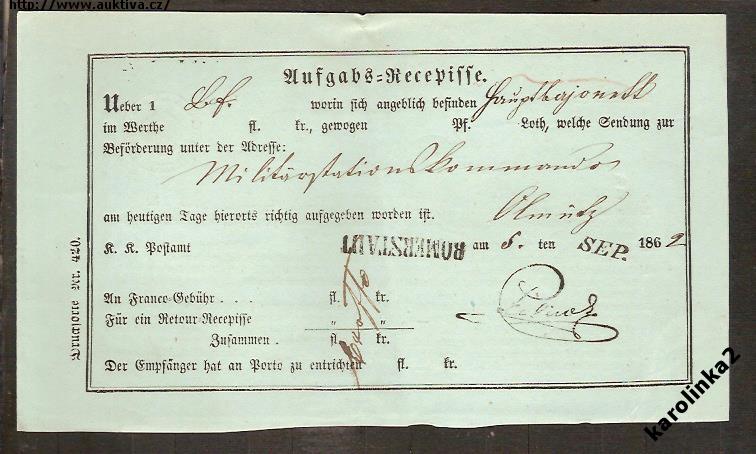 http://www.auktiva.cz/
Aufgabs=Recepisse.
Ueber 1 Bf. worin sich angeblich befinden Hauptbajonett
im Werthe fl. kr., gewogen Pf. Loth, welche Sendung zur
Beförderung unter der Adresse:
Militärstationskommando
am heutigen Tage hierorts richtig aufgegeben worden ist. Olmütz
K. K. Postamt RÖMERSTADT am 6. ten SEP. 1862
An Franco=Gebühr . . . fl. kr.
Für ein Retour=Recepisse " "
Zusammen . fl. kr.
Der Empfänger hat an Porto zu entrichten fl. kr.
Drucksorte Nr. 420.
karolinka2